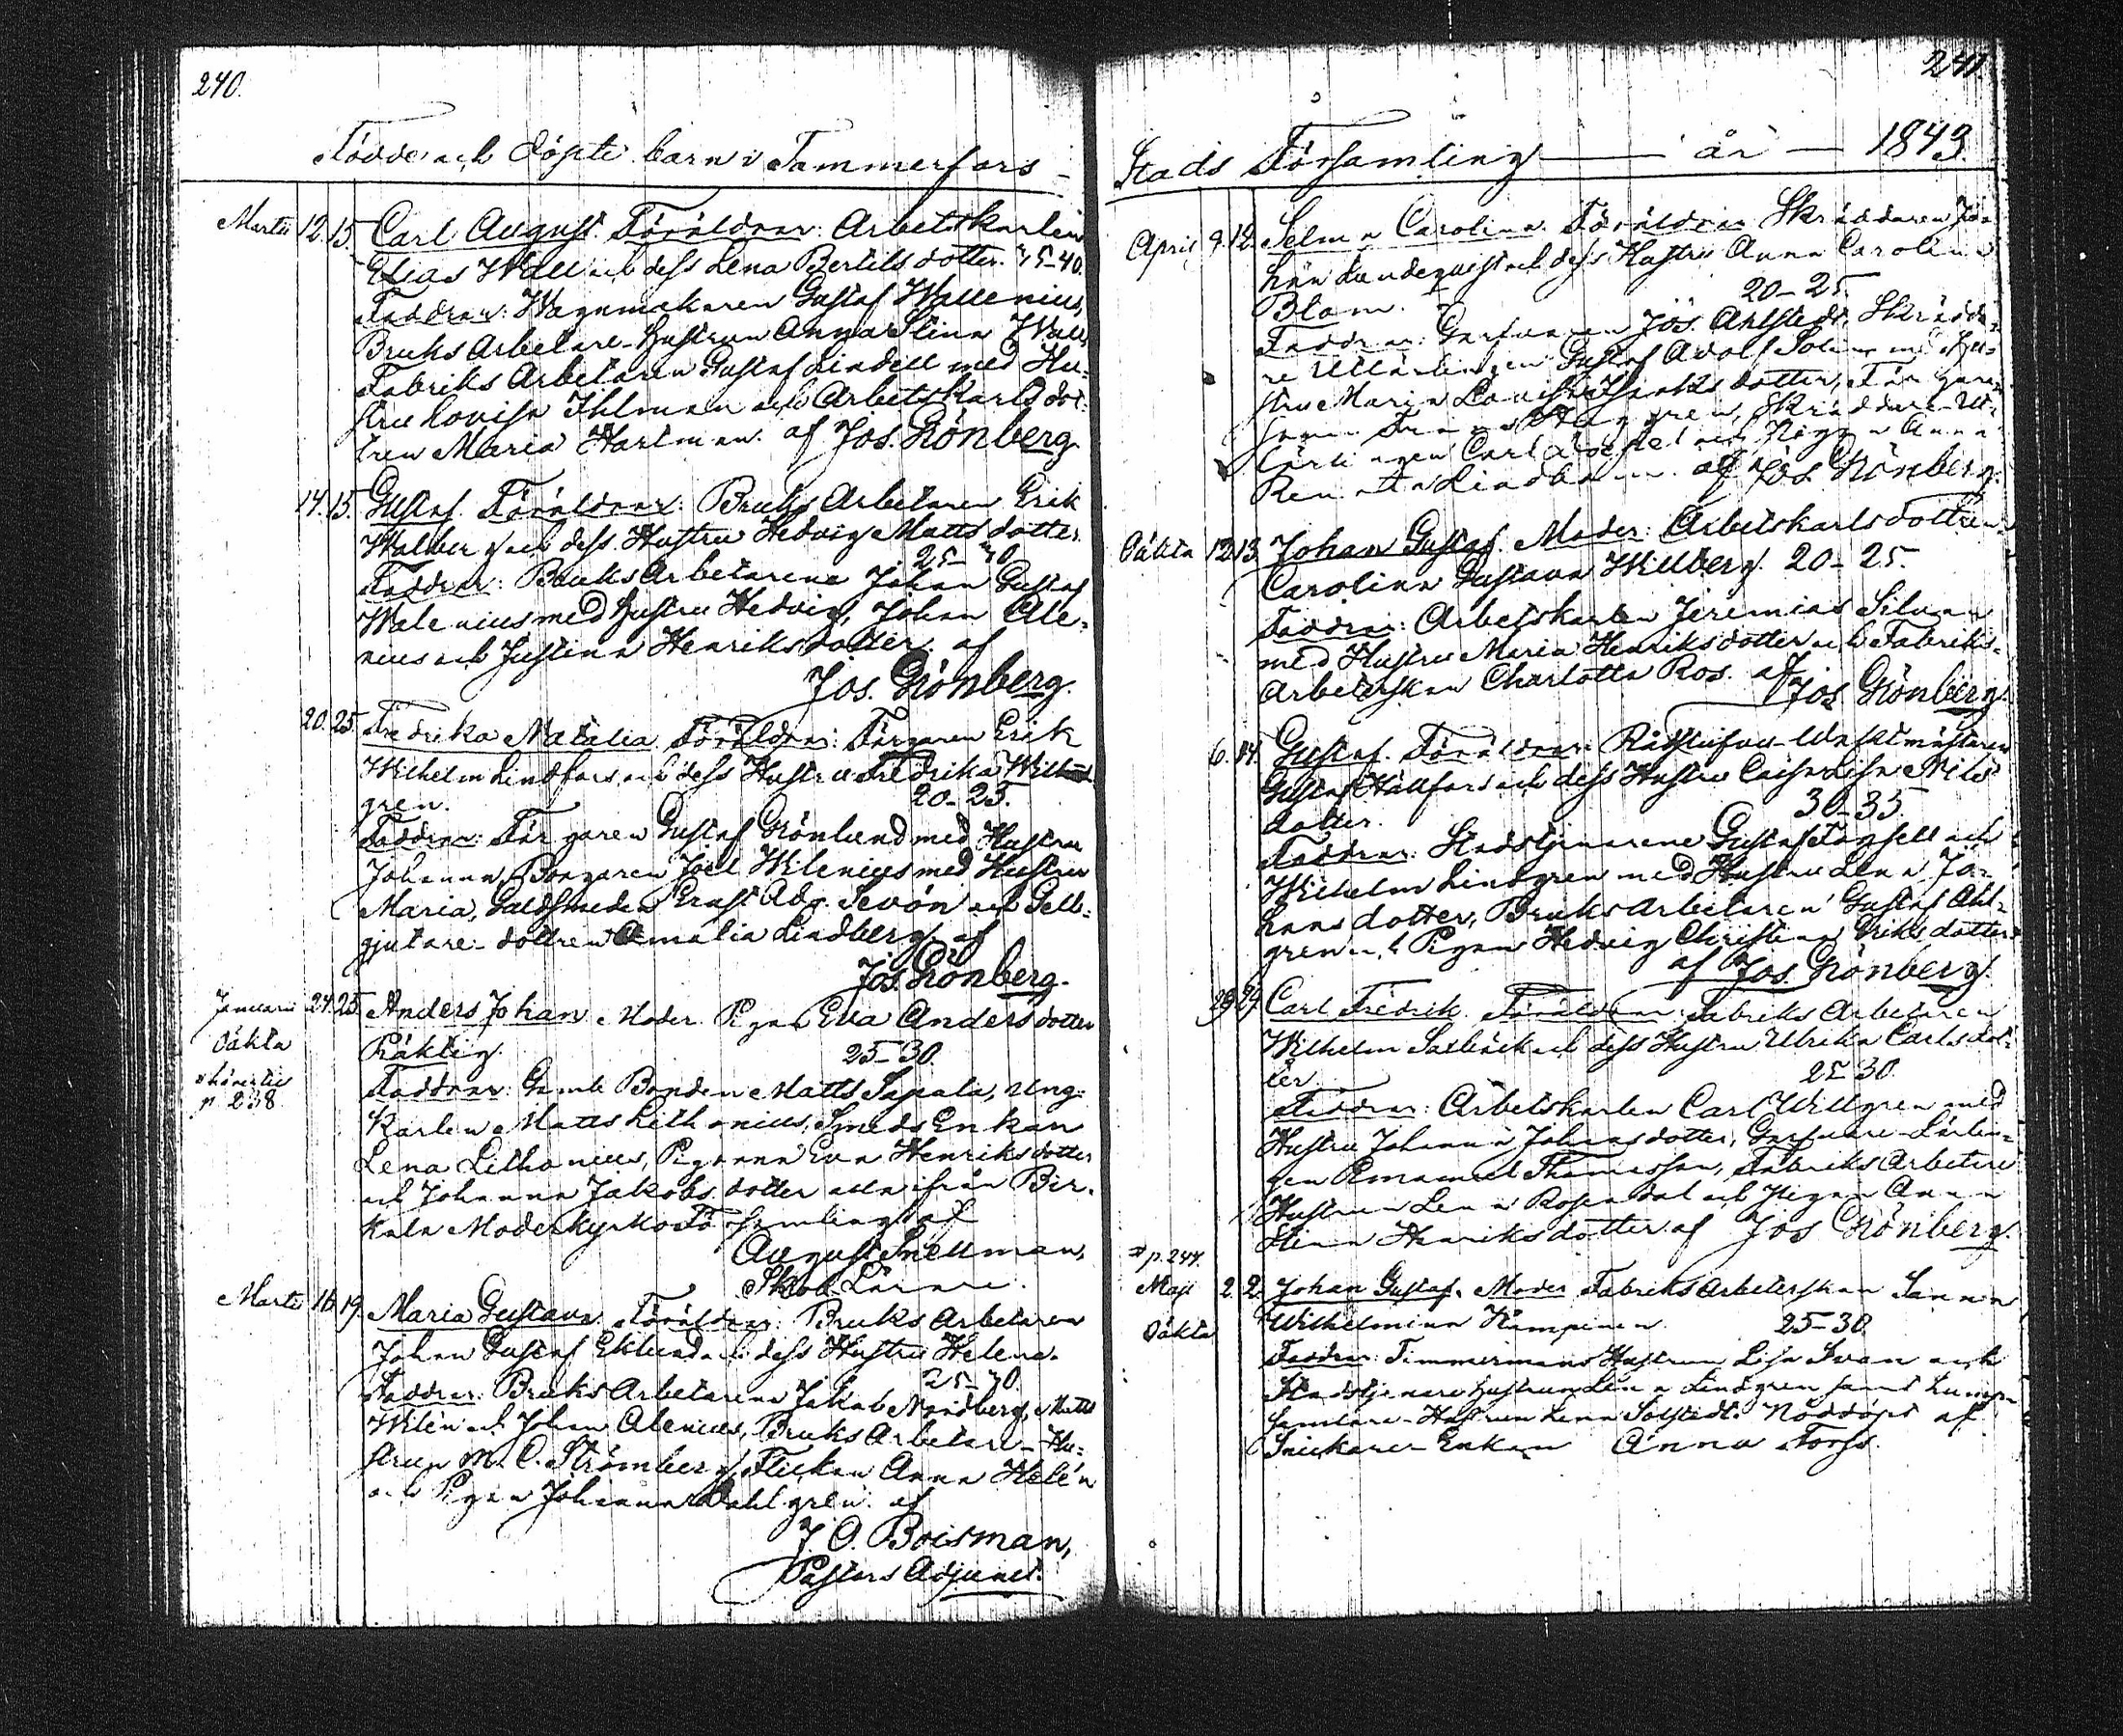 240.
Födde och döpte barn i Tammerfors
Martii 12. 15. Carl August. Föräldrar: Arbetskarlen
Elias Wäll och dess Lena Bertils dotter. 35-40.
Faddrar: Wagnmakaren Gustaf Wallenius,
Bruks Arbetare-Hustrun Anna Stina Wall,
Fabriks Arbetaren Gustaf Lindell med Hu-
stru Lovisa Ihlman och Arbetskarls dot-
tren Maria Hartman. af Jos. Grönberg.
14. 15. Gustaf. Föräldrar: Bruks Arbetaren Erik
Walber och dess Hustru Hedvig Matts dotter
25-30.
Faddrar: Bruks Arbetarene Johan Gustaf
Walenius med Hustru Hedvig, Johan Ale-
nius och Justina Henriks dotter. af
Jos. Grönberg.
20. 25. Fredrika Natalia. Föräldrar: Färgaren Erik
Wilhelm Lindfors och dess Hustru Fredrika
gren. 20-25.
Faddrar: Färgaren Gustaf Grönlund med Hustru
Johanna, Borgaren Joel Wilenius med Hustru
Maria, Guldsmeden Ernst Adr. Sevón och Gelb-
gjutare-dottren Amalia Lindberg af
Jos. Grönberg.
Januarii 24. 25. Anders Johan. Moder: Pigan Eva Anders dotter
Oäkta
Räktig. 25-30.
hörer till
p. 238
Faddrar: Gamle Bonden Matts Sapala, Ung-
Karlen Matts Lithonius, Smeds Enkan
Lena Lithonius, Pigorna Eva Henriks dotter
och Johanna Jakobs dotter alla ifrån Bir-
kala Moderkyrko Församling af
August Snellman,
Skol. Lärare.
Martii 16. 19. Maria Gustava. Föräldrar: Bruks Arbetaren
Johan Gustaf Eklund och dess Hustru Helena.
25-30.
Faddrar: Bruks Arbetarena Jakob Nordberg, Matts
Wilén och Johan Alenius, Bruks Arbetare-Hu-
strun M. C. Strömberg, Flickan Anna Helén
och Pigan Johanna Dahlgren. af
J. O. Boisman,
Pastors Adjunct.
241.
Stads Församling — år — 1843.
April 9. 12. Selma Carolina. Föräldrar: Skräddaren Jo-
han Lundeqvist och dess Hustru Anna Carolina
Blom. 20-25.
Faddrar: Garfvaren Jos. Ahlstedt, Skrädda-
re Utlärlingen Gustaf Adolf Solin med Hu-
stru Maria Lovisa Isaks dotter,
Skräddare-Ut-
lärlingen Carl och Pigan Anna
Renata Lindbom. af Jos. Grönberg.
Oäkta 12. 13. Johan Gustaf. Moder: Arbetskarls dottren
Carolina Gustava Willberg. 20-25.
Faddrar: Arbetskarlen Jeremias Silvan
med Hustru Maria Henriks dotter och Fabriks-
Arbeterskan Charlotta Ros. af
Jos. Grönberg.
6. 14. Gustaf. Föräldrar: Rådstufvu-Waktmästaren
Gustaf Hällfors och dess Hustru Caisa Lisa Nils
dotter. 30-35.
Faddrar: Stadstjenarene Gustaf Forsell och
Wilhelm Lindgren med Hustru Lena Jo-
hans dotter, Bruks Arbetaren Gustaf Ahl-
gren och Pigan Hedvig Christina Eriks dotter
af Jos. Grönberg.
29. 29. Carl Fredrik. Föräldrar: Fabriks Arbetaren
Wilhelm Salbäck och dess Hustru Ulrika Carls dot-
ter. 25-30.
Faddrar: Arbetskarlen Carl Willgren med
Hustru Johanna Johans dotter, Garfvare-Lärlin-
gen Emanuel Thomasson, Fabriks Arbetare
Hustrun Lena Rosendal och Pigan Anna
Stina Henriks dotter. af Jos. Grönberg.
p. 244.
Maji 2. 2. Johan Gustaf. Moder Fabriks Arbeterskan Sanna
Oäkta
Wilhelmina Kämpinen. 25-30.
Faddrar: Timmermans Hustrun Lisa Svan och
Stadstjenare Hustrun Lena Lindgren samt Lump-
samlare-Hustrun Lena Solstedt. Nöddöpt af
Snickare-Enkan Anna Forss.